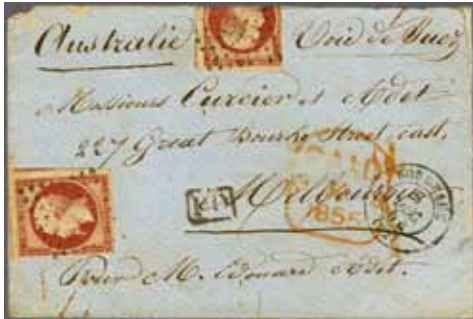 Australie Voie de Suez
Messieurs Curcier et Adet
227 Great Bourke Street east,
Melbourne
PAID
1855
Pour M. Edouard Adet.